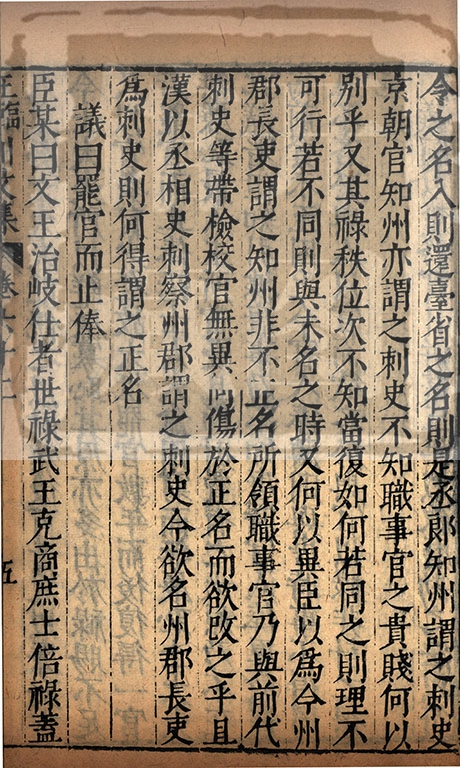 令之名入則還臺省之名則是丞郎知州謂之刺史
京朝官知州亦謂之刺史不知職事官之貴賤何以
別乎又其祿秩位次不知當復如何若同之則理不
可行若不同則與未名之時又何以異臣以爲今州
郡長吏謂之知州非不正名所領職事官乃與前代
刺史等帶檢校官無異何傷於正名而欲改之乎且
漢以丞相史刺察州郡謂之刺史今欲名州郡長吏
爲刺史則何得謂之正名
議曰罷官而止俸
臣某曰文王治岐仕者世祿武王克商庶士倍祿蓋
王臨川文集 卷六十二 五